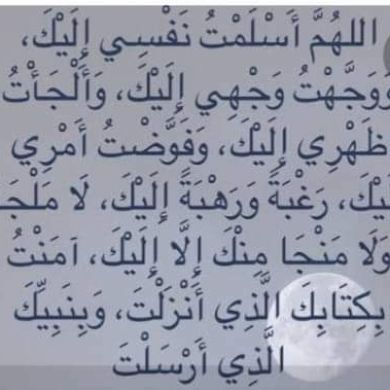 اللهُمَّ أَسْلَمْتُ نَفْسِي إِلَيْكَ،
وَوَجَّهْتُ وَجْهِي إِلَيْكَ، وَأَلْجَأْتُ
ظَهْرِي إِلَيْكَ، وَفَوَّضْتُ أَمْرِي
لَيْكَ، رَغْبَةً وَرَهْبَةً إِلَيْكَ، لَا مَلْجَ
وَلَا مَنْجَا مِنْكَ إِلَّا إِلَيْكَ، آمَنْتُ
بِكِتَابِكَ الَّذِي أَنْزَلْتَ، وَبِنَبِيِّكَ
الَّذِي أَرْسَلْتَ